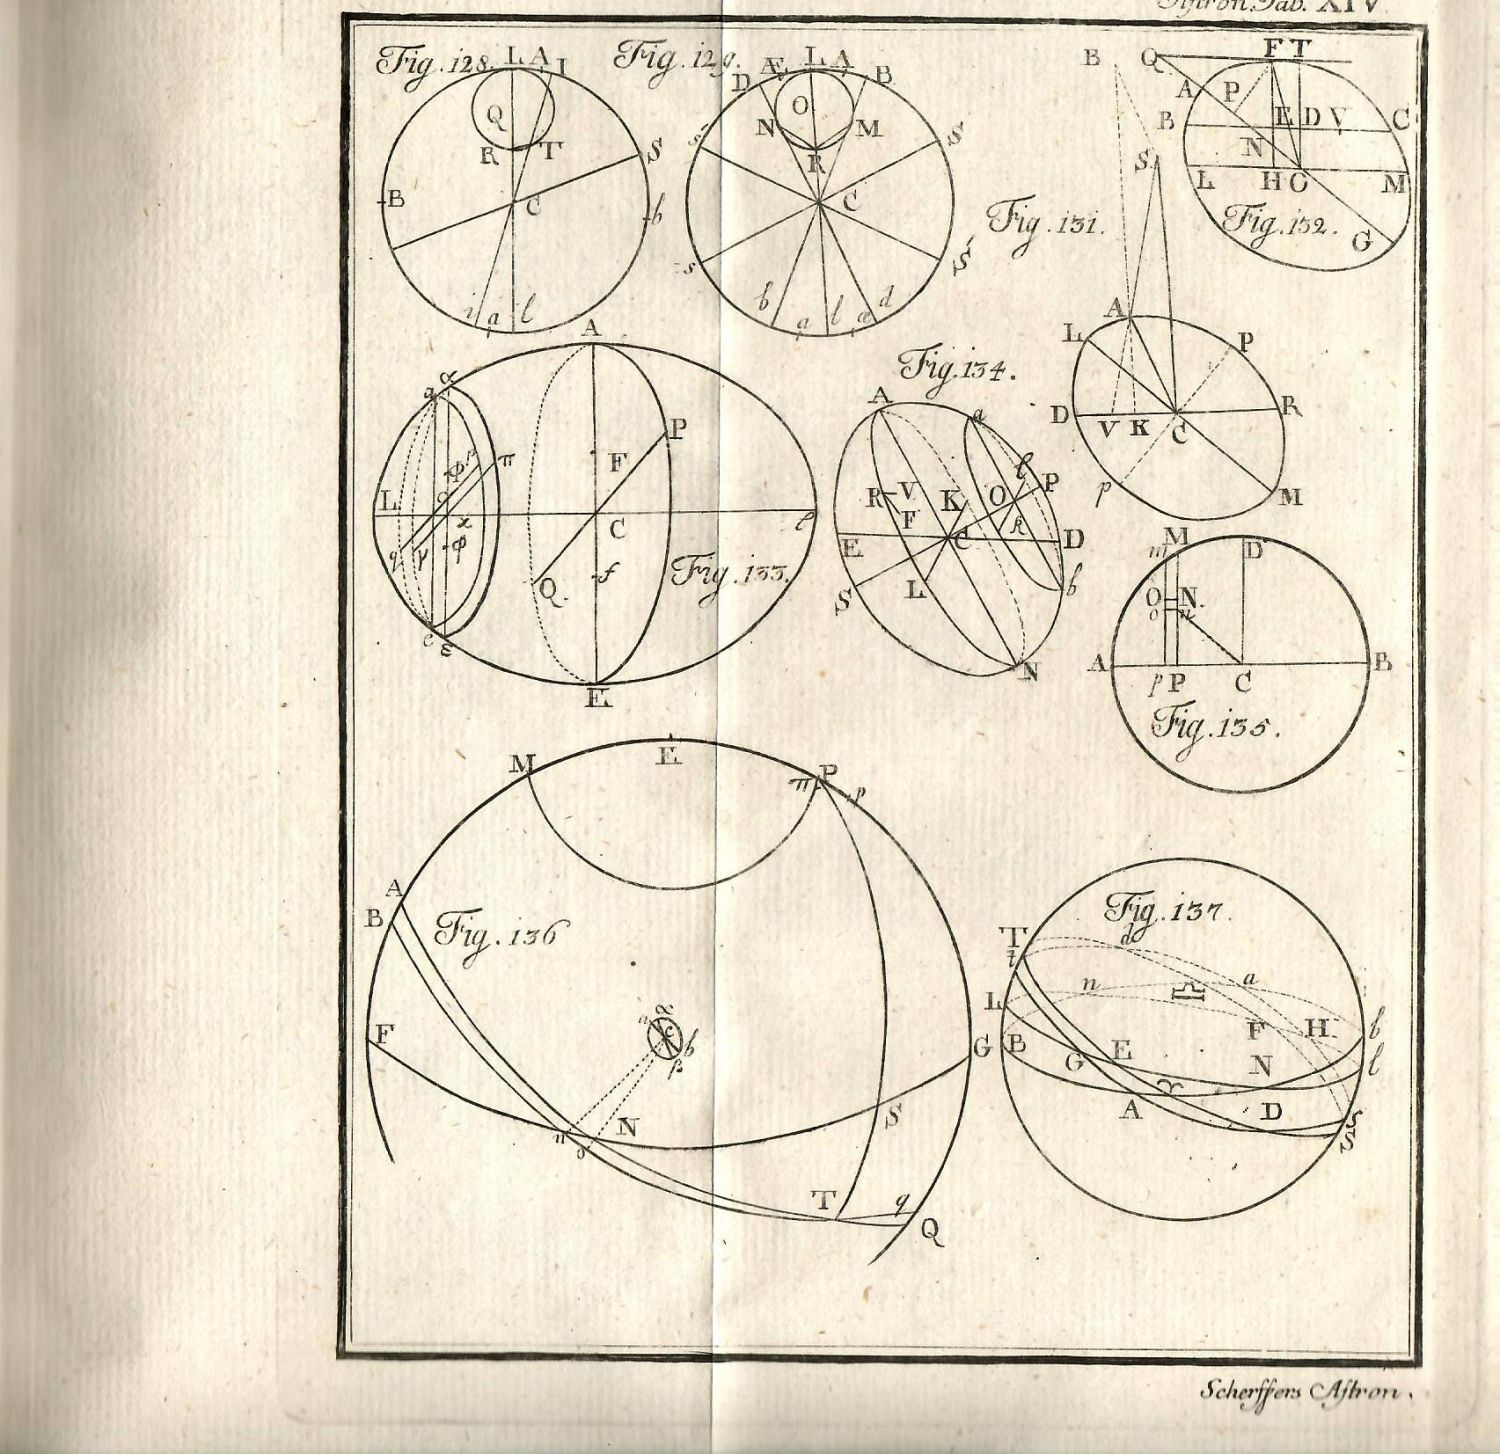 Astron. Tab. XIV
Fig. 128. L A I
Q
R T
S
B
C
b
i a l
Fig. 129. L A
D Æ B
O
N M
R
s S
C
s S
b a l æ d
Fig. 131.
B
S
A
L P
D V K C R
p M
Q F T
A P
B E D V C
N
L H O M
Fig. 132.
G
A
a α
P
F
φ p π
o
L l
x C
q γ φ
f
Q
Fig. 133.
e ε
E
Fig. 134.
A a
l P
R V K O
F k
E C D
S L b
N
m M D
O N.
o n
A B
p P C
Fig. 135.
M E P
π p
A
B Fig. 136
F G
n α
c b
β
n N S
o
T q
Q
Fig. 137.
T d
t
n ♎ a
L F H b
B G E N l
♈
A D
S
s
Scherffers Astron.